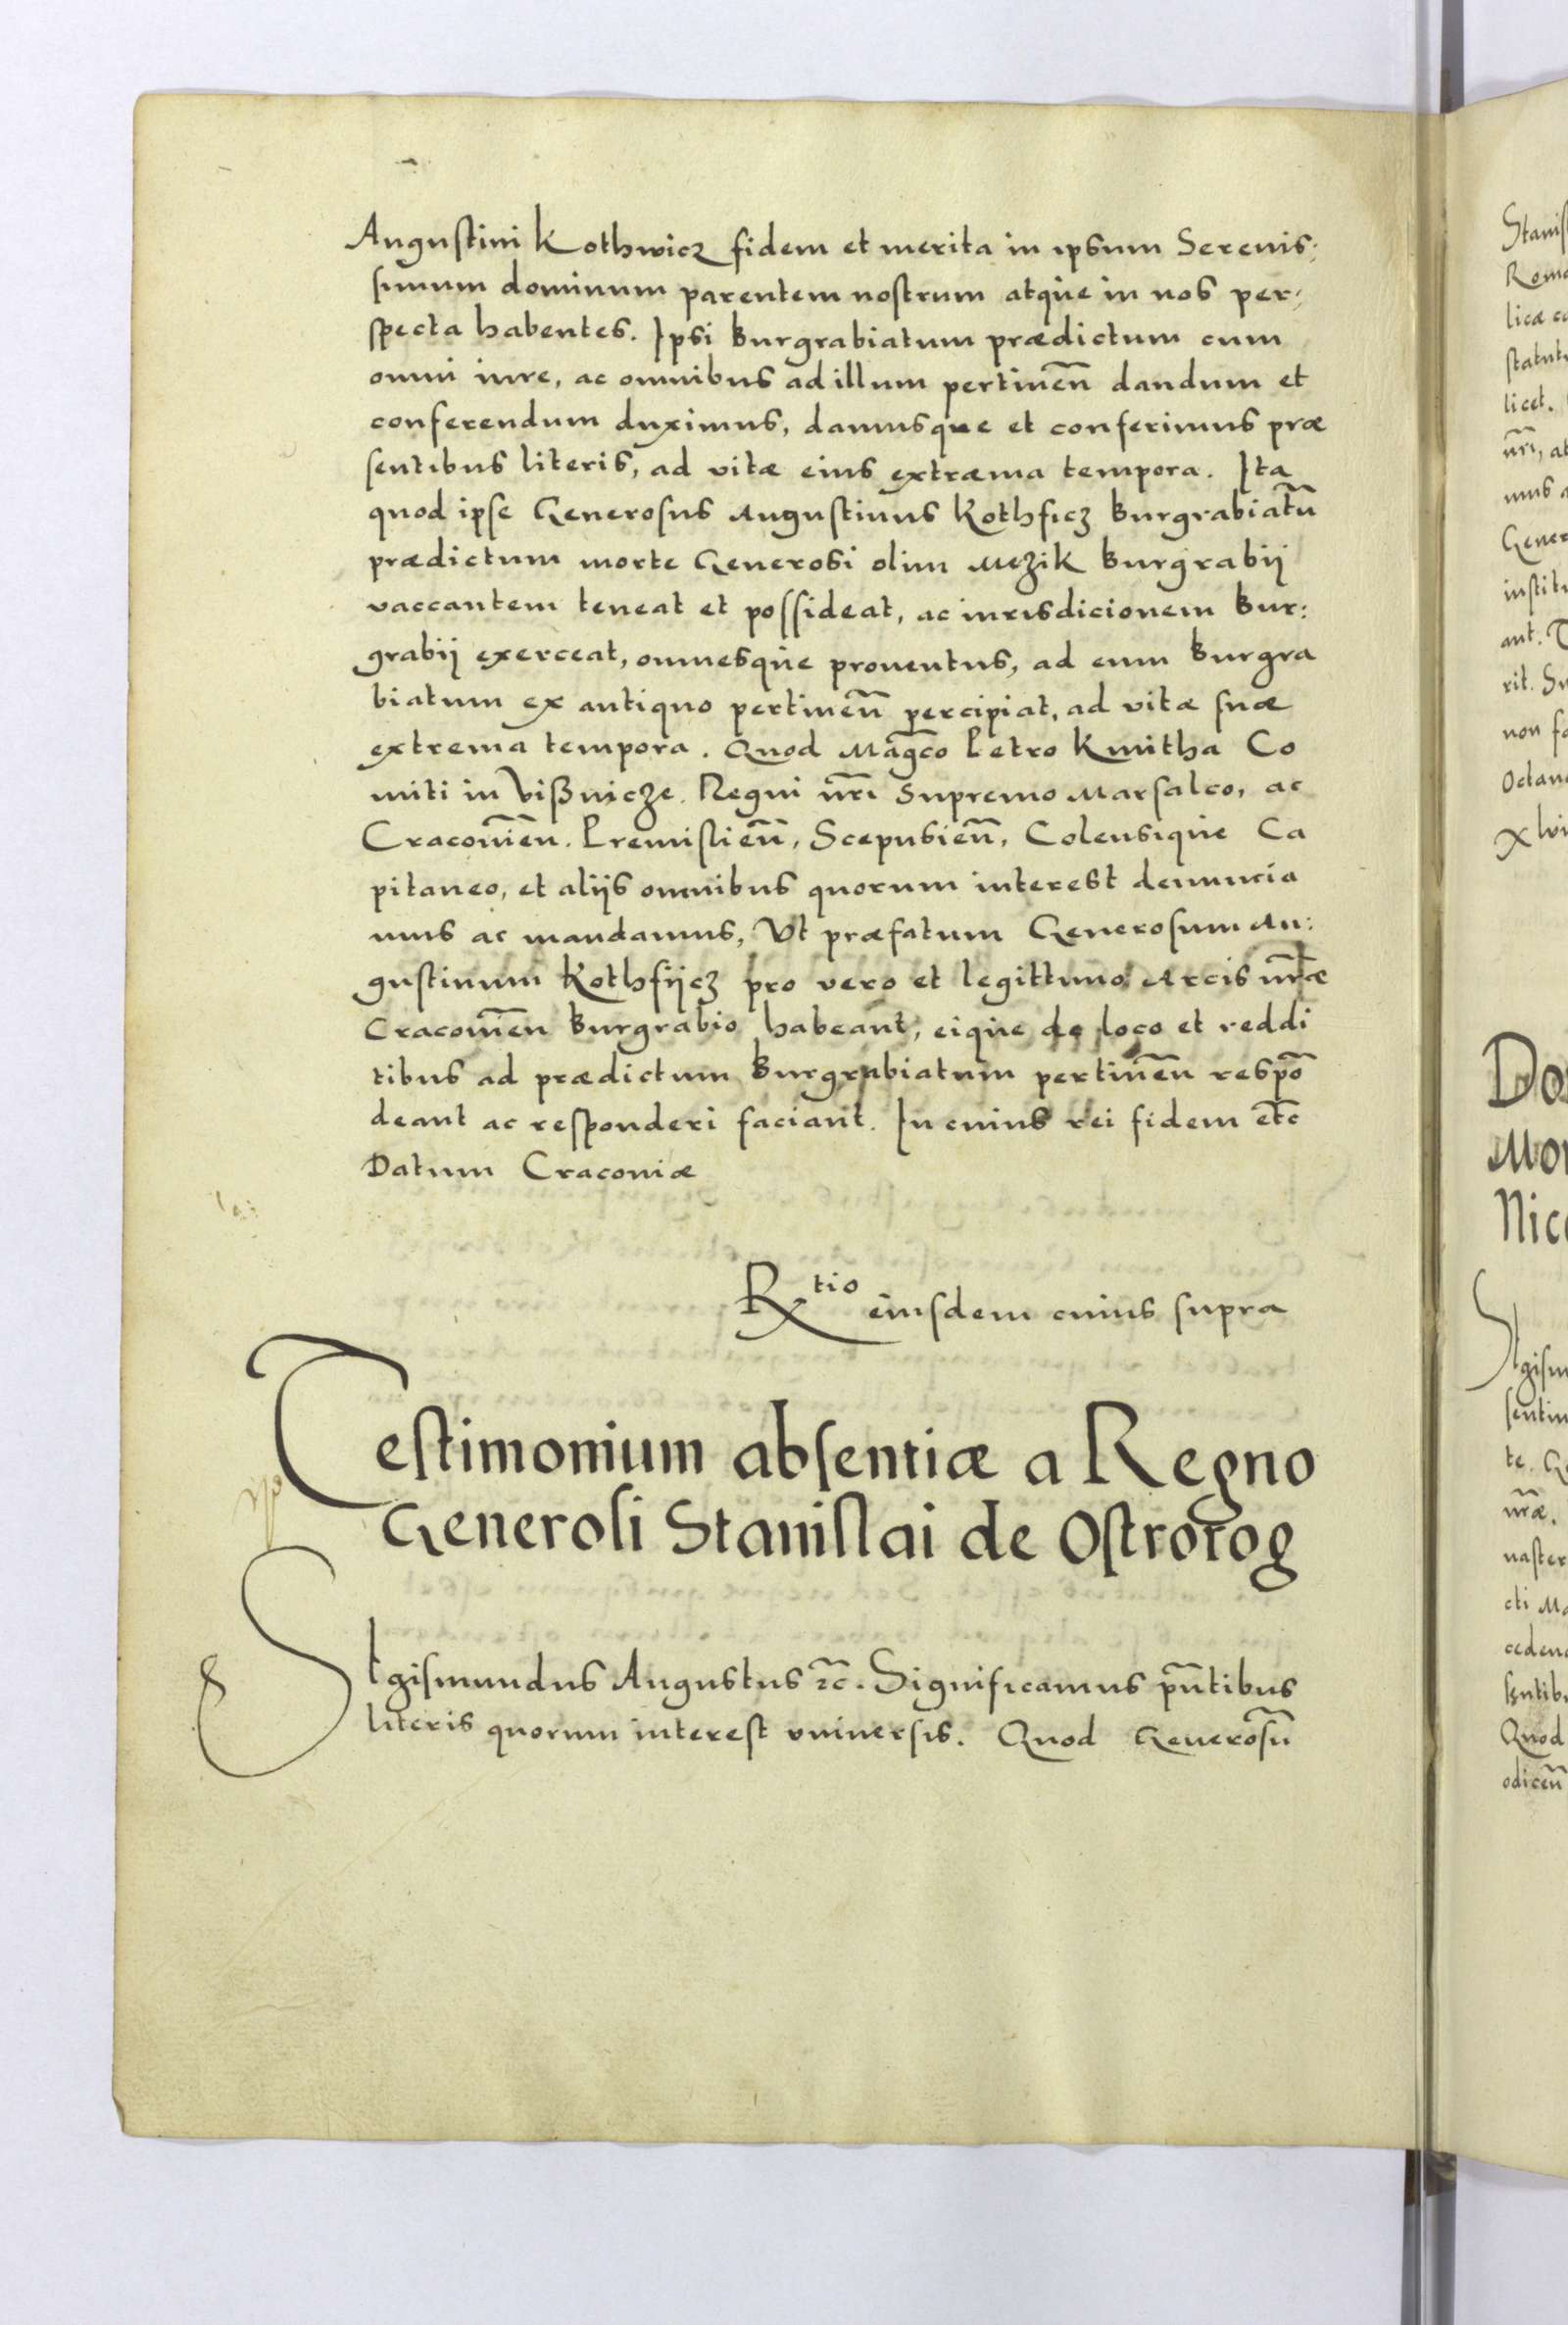 Augustini Kothwicz fidem et merita in ipsum Serenis:
simum dominum parentem nostrum atque in nos per:
specta habentes. Ipsi Burgrabiatum prædictum cum
omni iure, ac omnibus ad illum pertineñ dandum et
conferendum duximus, damusque et conferimus præ
sentibus literis, ad vitæ eius extræma tempora. Ita
quod ipse Generosus Augustinus Kothficz Burgrabiatū
prædictum morte Generosi olim Mezik Burgrabij
vaccantem teneat et possideat, ac iurisdicionem Bur:
grabij exerceat, omnesque prouentus, ad eum Burgra
biatum ex antiquo pertineñ percipiat, ad vitæ suæ
extrema tempora. Quod Magco Petro Kmitha Co
miti in Vißnicze. Regni nr̃i Supremo Marsalco, ac
Cracouieñ. Premislieñ, Scepusieñ, Colensique Ca
pitaneo, et alijs omnibus quorum interest denuncia
mus ac mandamus, Vt præfatum Generosum Au:
gustinum Kothfijcz pro vero et legittimo Arcis nr̃æ
Cracouieñ Burgrabio habeant, eique de loco et reddi
tibus ad prædictum Burgrabiatum pertineñ respō
deant ac responderi faciant. In cuius rei fidem etc̃
Datum Cracouiæ
Rtio eiusdem cuius supra
Testimonium absentiæ a Regno
Generosi Stanislai de Ostrorog
SIgismundus Augustus ⁊c̃. Significamus pñtibus
literis quorum interest vniuersis. Quod Generosū